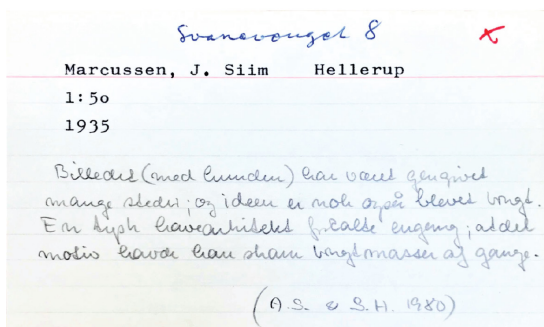 Svanevænget 8 x
Marcussen, J. Siim Hellerup
1:50
1935
Billedet (med hunden) har været gengivet
mange steder; og ideen er nok også blevet brugt.
En tysk havearkitekt fortalte engang; at det
motiv havde han sham brugt masser af gange.
(A.S. & S.H. 1980)